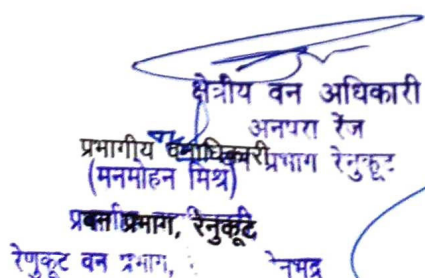 क्षेत्रीय वन अधिकारी
अनपरा रेंज
प्रभागीय वनाधिकारी प्रभाग रेनुकूट
(मनमोहन मिश्र)
वन प्रभाग, रेनुकूट
रेणुकूट वन प्रभाग,